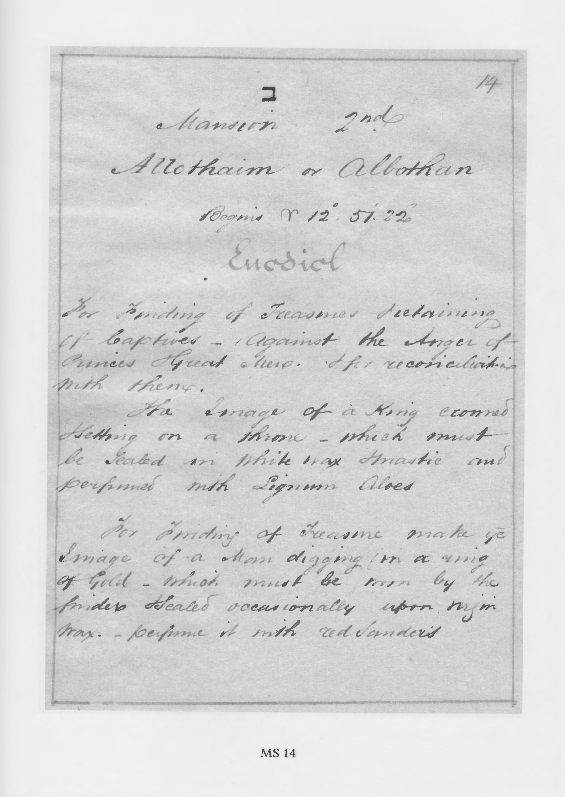 14
ב
Mansion 2nd
Allothaim or Albothan
Begins ♈ 12° 51' 22"
Enediel
For Finding of Treasures & retaining
of Captives – Against the Anger of
Princes & Great Men. & for reconciliation
with them.
The Image of a King crowned
Setting on a throne – which must
be Sealed in White wax & mastic and
perfumed with Lignum Aloes
For Finding of Treasure make ye
Image of a Man digging in a ring
of Gold – which must be worn by the
finder & Sealed occasionally upon virgin
wax. – perfume it with red Sanders
MS 14